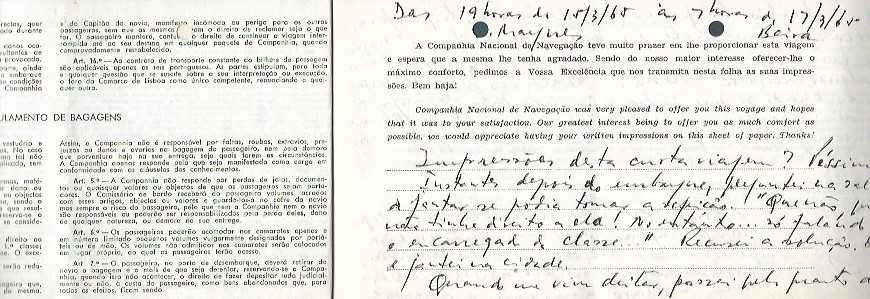 reclas, quer
ado durante
danos ocor-
ocultantes de
provocado.
porte, ainda
ao embarcar
ou condições
Companhia
e do Capitão do navio, manifeste incómodo ou perigo para os outros
passageiros, sem que os mesmos tenham o direito de reclamar seja o que
for. O passageiro manterá, contudo, o direito de continuar a viagem inter-
rompida até ao seu destino em qualquer paquete da Companhia, quando
comprovadamente restabelecido.
Art. 16.º — Ao contrato de transporte constante do bilhete de passagem
são aplicáveis apenas as leis portuguesas. As partes estipulam, para toda
e qualquer questão que se suscite sobre a sua interpretação ou execução,
o foro da Comarca de Lisboa como único competente, renunciando a qual-
quer outro.
ULAMENTO DE BAGAGENS
vestuário e
es. No caso
Assim, a Companhia não é responsável por faltas, roubos, extravios, pre-
juízos ou danos e avarias na bagagem do passageiro, nem pela demora
que porventura haja na sua entrega, seja quais forem as circunstâncias.
A Companhia apenas responde pela que seja manifestada como carga em
conformidade com as cláusulas dos conhecimentos.
Art. 5.º — A Companhia não responde por perdas de jóias, documen-
tos ou quaisquer valores ou objectos de que os passageiros sejam porta-
dores. O Comissário de bordo receberá do passageiro volumes lacrados
com esses artigos, objectos ou valores e guardá-los-á no cofre do navio
mas sempre a risco do passageiro, pelo que nem a Companhia nem o navio
são responsáveis ou poderão ser responsabilizados pela perda deles, dano
de qualquer natureza, ou demora na sua entrega.
Art. 6.º — Os passageiros poderão acomodar nos camarotes apenas e
em número limitado pequenos volumes vulgarmente designados por portá-
teis ou de mão. Os volumes não admitidos nos camarotes serão colocados
em lugar próprio, ao qual os passageiros terão acesso.
Art. 7.º — O passageiro, no porto de desembarque, deverá retirar do
navio a bagagem e o mais de que seja detentor, reservando-se a Compa-
nhia, quando isso não acontecer, o direito de fazer depositar tudo judicial-
mente ou não, à custa do passageiro, como bens abandonados que, para
todos os efeitos, ficam sendo.
Das 19 horas de 15/3/65 às 7 horas de 17/3/65
L. Marques Beira
A Companhia Nacional de Navegação teve muito prazer em lhe proporcionar esta viagem
e espera que a mesma lhe tenha agradado. Sendo do nosso maior interesse oferecer-lhe o
máximo conforto, pedimos a Vossa Excelência que nos transmita nesta folha as suas impres-
sões. Bem haja!
Companhia Nacional de Navegação was very pleased to offer you this voyage and hopes
that it was to your satisfaction. Our greatest interest being to offer you as much comfort as
possible, we would appreciate having your written impressions on this sheet of paper. Thanks!
Impressões desta curta viagem?
Instantes depois do embarque, perguntei na
de jantar se podia tomar a refeição.
tinha direito a ela! No entanto... só falando
o encarregado de classe." Recusei a solução,
e jantei na cidade.
Quando me vim deitar, passei pelo